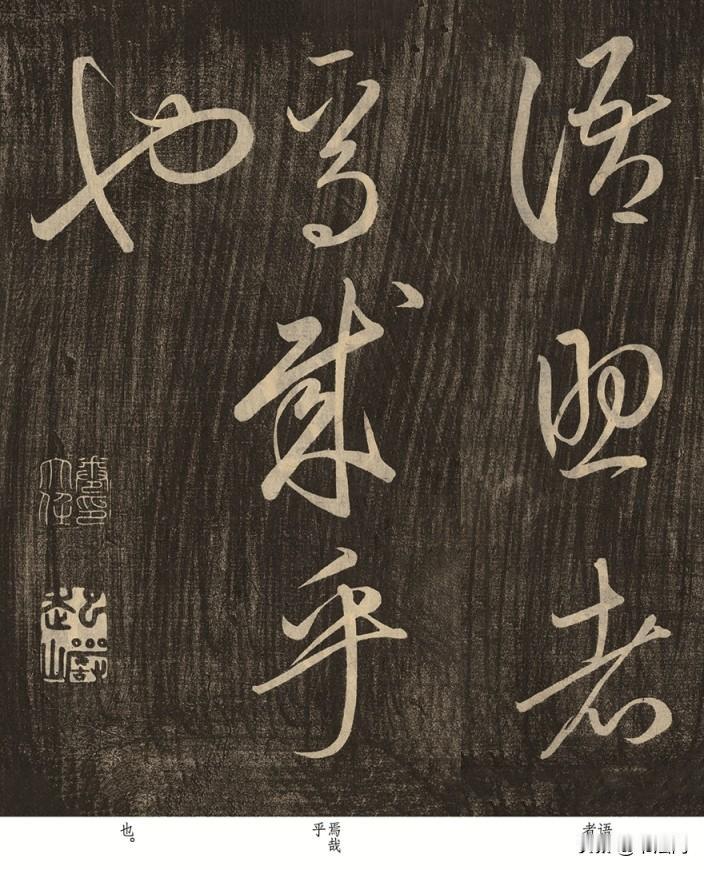 語助者
焉哉乎
也
语
者
焉哉
乎
也。